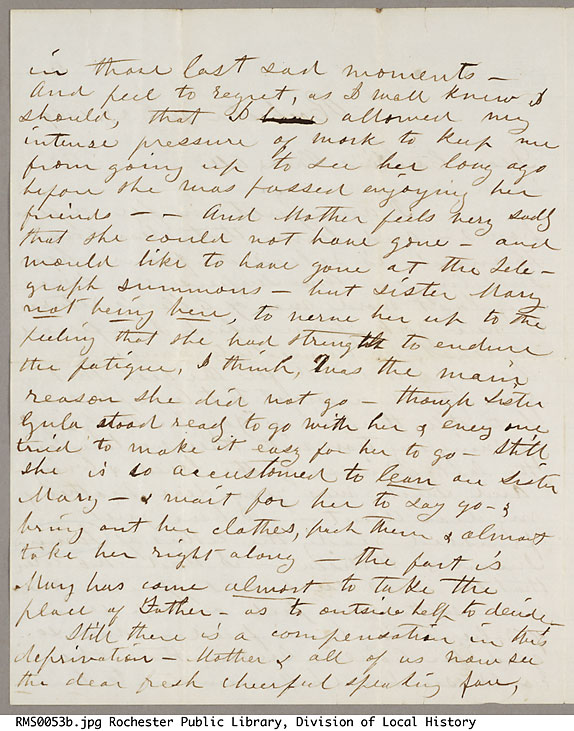 in those last sad moments –
And feel to regret, as I well knew I
should, that I have allowed my
intense pressure of work to keep me
from going up to see her long ago
before she was passed enjoying her
friends – – And Mother feels very sadly
that she could not have gone – and
would like to have gone at the Tele-
graph summons – but sister Mary
not being here, to nerve her up to the
feeling that she had strength to endure
the fatigue, I think, was the main
reason she did not go – though Sister
Gula stood ready to go with her & every one
tried to make it easy for her to go – Still
she is so accustomed to lean on Sister
Mary – & wait for her to say go – &
bring out her clothes, pack them & almost
take her right along – the fact is
Mary has come almost to take the
place of Father – as to outside help to decide –
Still there is a compensation in this
deprivation – Mother & all of us now see
the dear fresh cheerful speaking face,
RMS0053b.jpg Rochester Public Library, Division of Local History